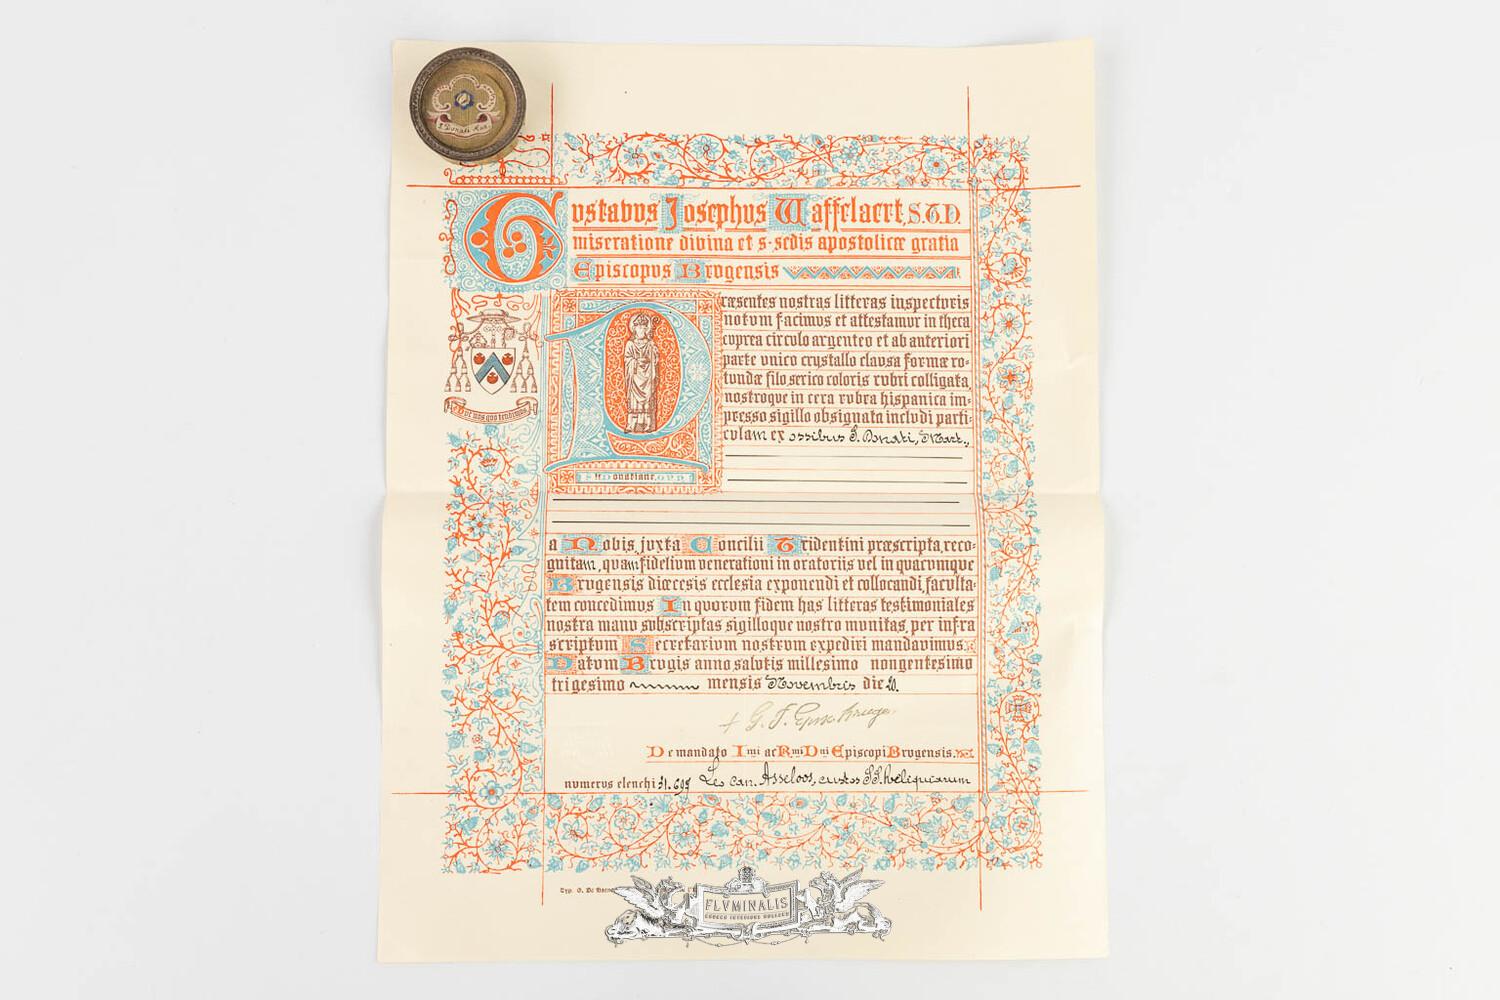 S. Donati Mar.
Gustavus Josephus Waffelaert, S.T.D.
miseratione divina et s. sedis apostolicæ gratia
Episcopus Brugensis
Præsentes nostras litteras inspecturis
notum facimus et attestamur in theca
cuprea circulo argenteo et ab anteriori
parte unico crystallo clausa formæ ro-
tundæ filo serico coloris rubri colligata,
nostroque in cera rubra hispanica im-
presso sigillo obsignata includi parti-
culam ex ossibus S. Donati, Mart.,
St Donatiane, O.P.N.
a Nobis, juxta Concilii Tridentini præscripta, reco-
gnitam, quam fidelium venerationi in oratoriis vel in quacumque
Brugensis diœcesis ecclesia exponendi et collocandi, faculta-
tem concedimus In quorum fidem has litteras testimoniales
nostra manu subscriptas sigilloque nostro munitas, per infra
scriptum Secretarium nostrum expediri mandavimus.
Datum Brugis anno salutis millesimo nongentesimo
trigesimo mensis Novembris die 20.
De mandato Imi ac Rmi Dni Episcopi Brugensis.
numerus elenchi 31.699 Leo can. Asseloos, custos SS. Reliquiarum
Typ. G. De
FLVMINALIS